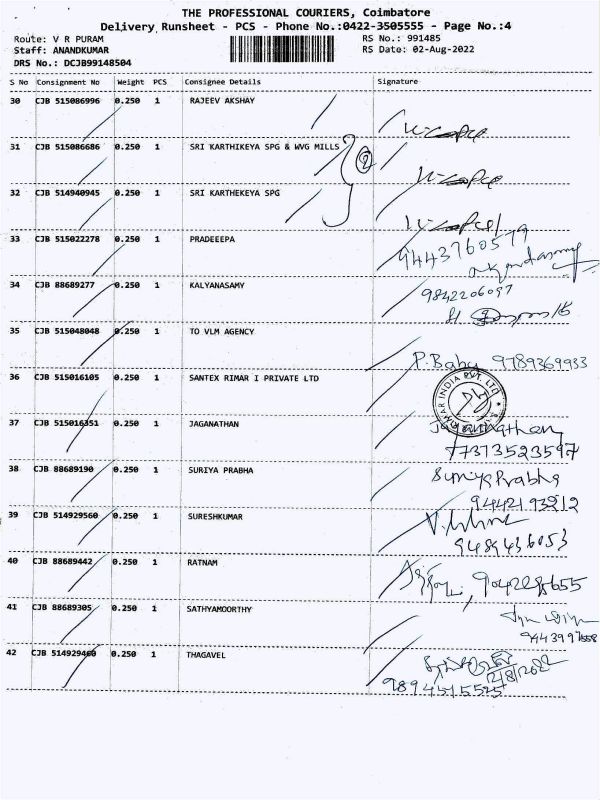 THE PROFESSIONAL COURIERS, Coimbatore
Delivery Runsheet - PCS - Phone No.:0422-3505555 - Page No.:4
Route: V R PURAM RS No.: 991485
Staff: ANANDKUMAR RS Date: 02-Aug-2022
DRS No.: DCJB99148504
S No Consignment No Weight PCS Consignee Details Signature
30 CJB 515086996 0.250 1 RAJEEV AKSHAY
31 CJB 515086686 0.250 1 SRI KARTHIKEYA SPG & WVG MILLS 2
32 CJB 514940945 0.250 1 SRI KARTHEKEYA SPG
33 CJB 515022278 0.250 1 PRADEEEPA 9443760579
34 CJB 88689277 0.250 1 KALYANASAMY 9842206097
35 CJB 515048048 0.250 1 TO VLM AGENCY P.Babu 9789369933
36 CJB 515016105 0.250 1 SANTEX RIMAR I PRIVATE LTD RIMAR INDIA PVT. LTD
37 CJB 515016351 0.250 1 JAGANATHAN Jaganathan
77373523597
38 CJB 88689190 0.250 1 SURIYA PRABHA Suriya Prabha
9442193212
39 CJB 514929560 0.250 1 SURESHKUMAR
9489436053
40 CJB 88689442 0.250 1 RATNAM
41 CJB 88689305 0.250 1 SATHYAMOORTHY
42 CJB 514929460 0.250 1 THAGAVEL 2/8/2022
9894515525